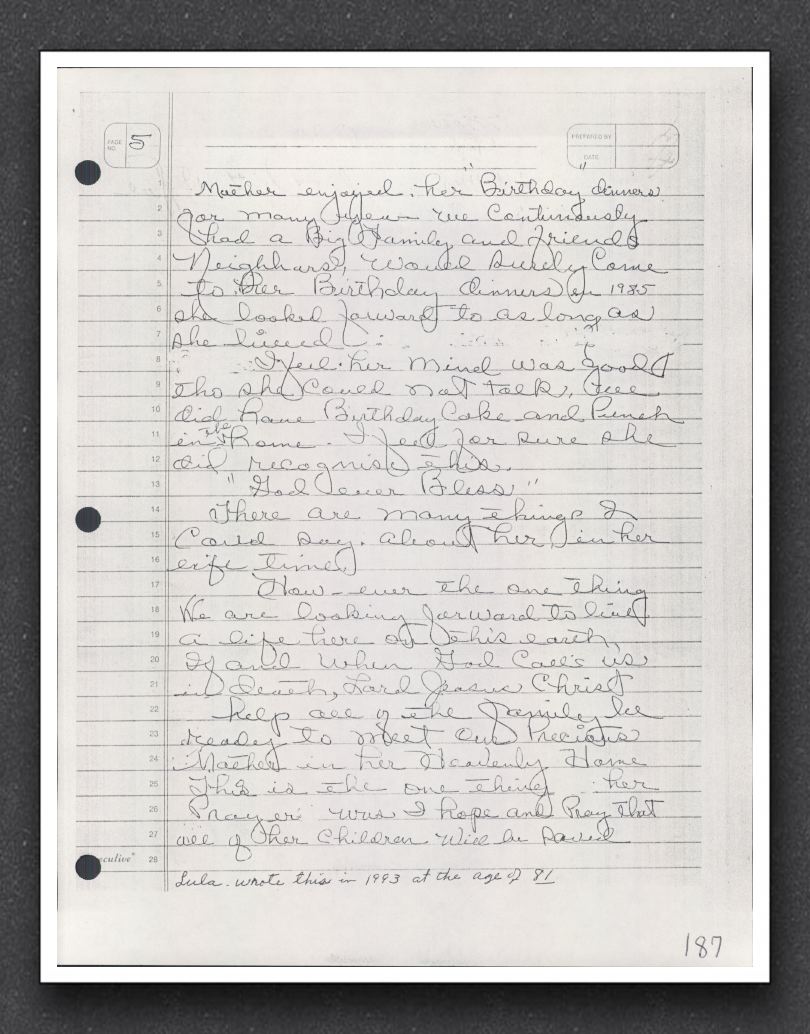 PAGE NO. 5
PREPARED BY
DATE
1 Mother enjoyed, her "Birthday dinners"
2 for many years we Continuously
3 had a Big Family and friends
4 Neighbors, would surely Come
5 to her Birthday dinners in 1985
6 she looked forward to as long as
7 she lived.
8 I feel her Mind was good
9 tho she Could not talk, we
10 did have Birthday Cake and Punch
11 in the home. I feel for sure she
12 did recognise this.
13 "God ever Bless"
14 There are many things I
15 Could say. about her, in her
16 life time,
17 How-ever the one thing
18 We are looking forward to live
19 a life here on this earth,
20 If and When God Call's us
21 in death, Lord Jesus Christ
22 help all of the family be
23 ready to meet Our Precious
24 Mother in her Heavenly Home
25 This is the one thing her
26 Prayer was I hope and Pray that
27 all of her Children Will be Saved
28
Lula wrote this in 1993 at the age of 81
187